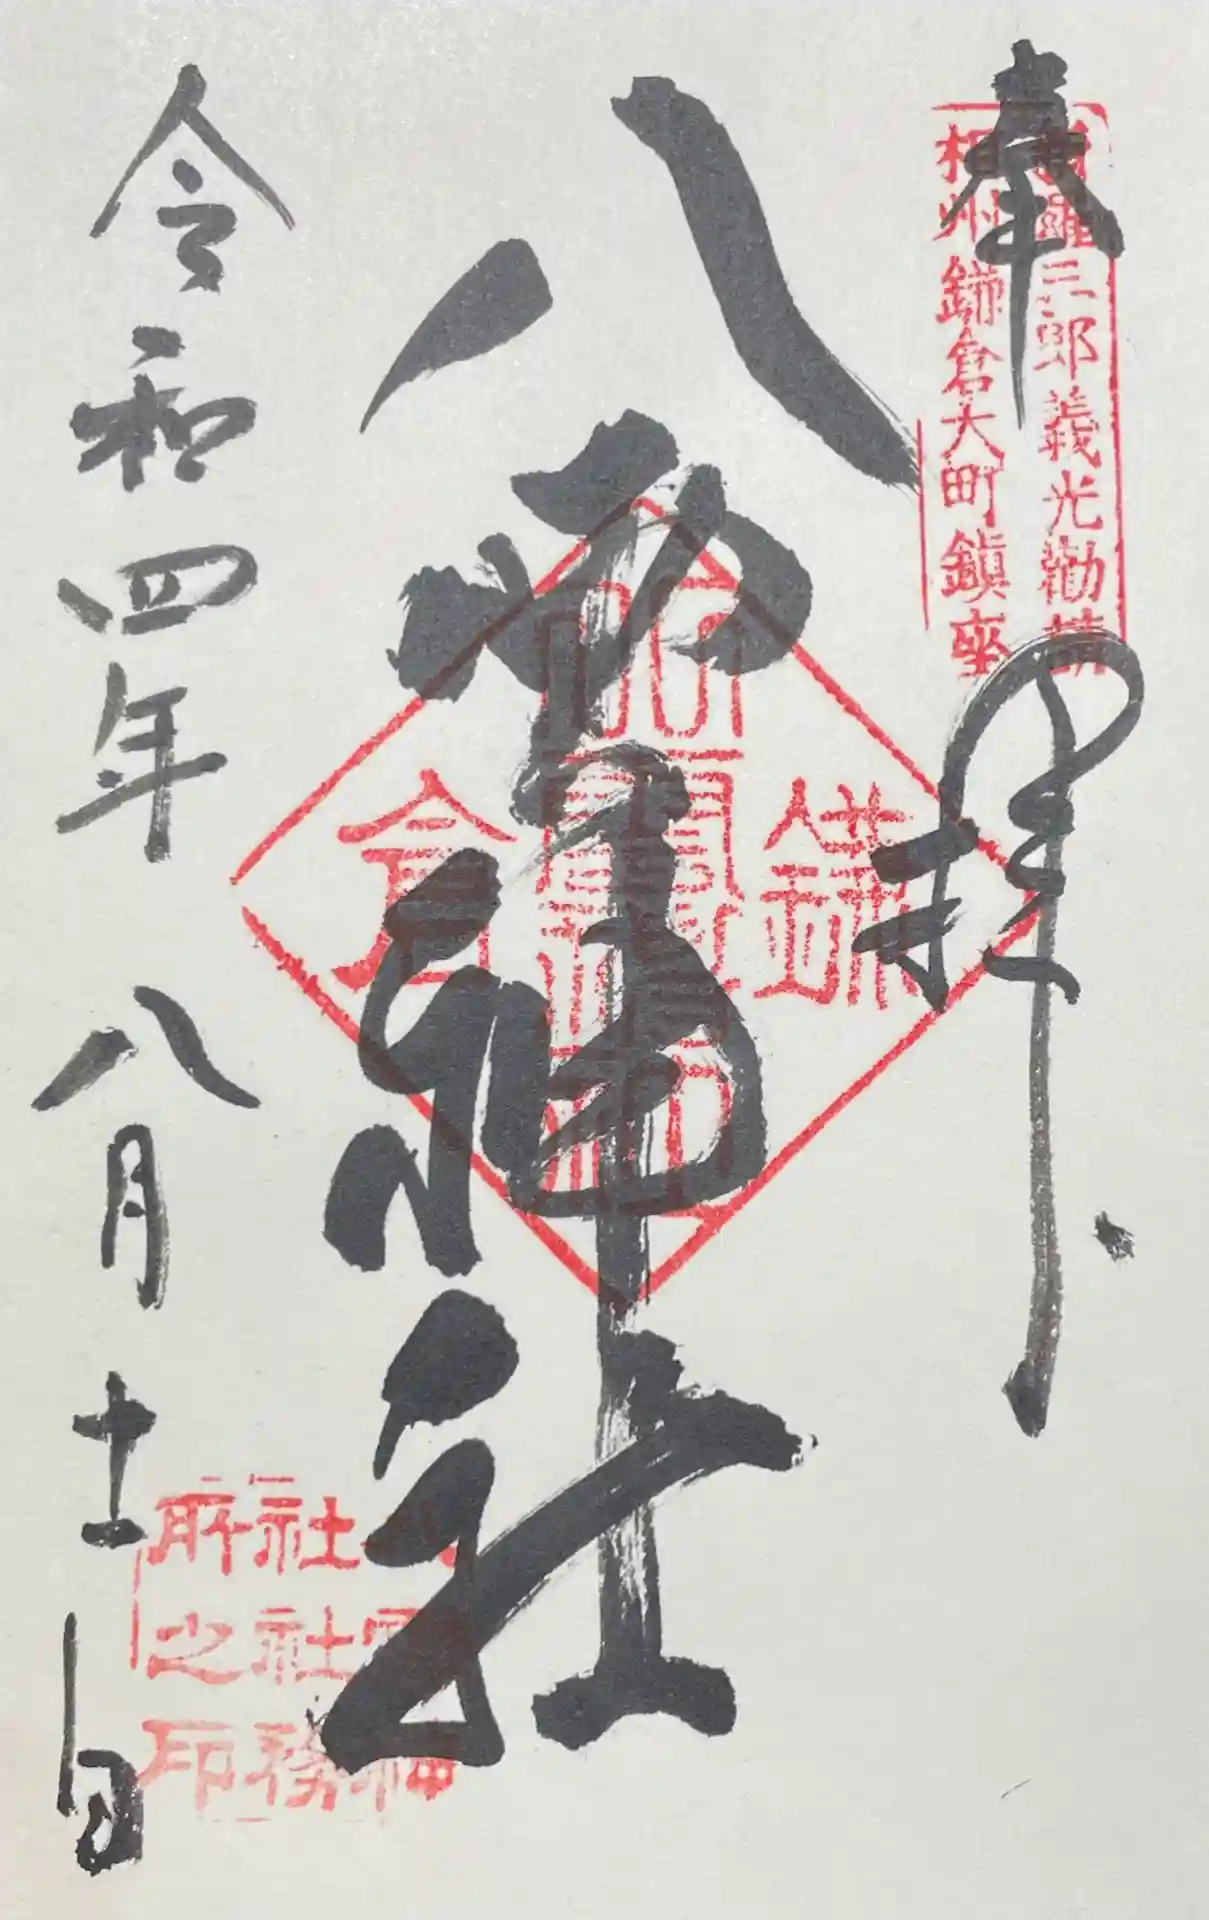 奉拝
新羅三郎義光勧請
相州鎌倉大町鎮座
八雲神社
鎌倉
八雲神社
令和四年八月十一日
八雲神
社社務
所之印